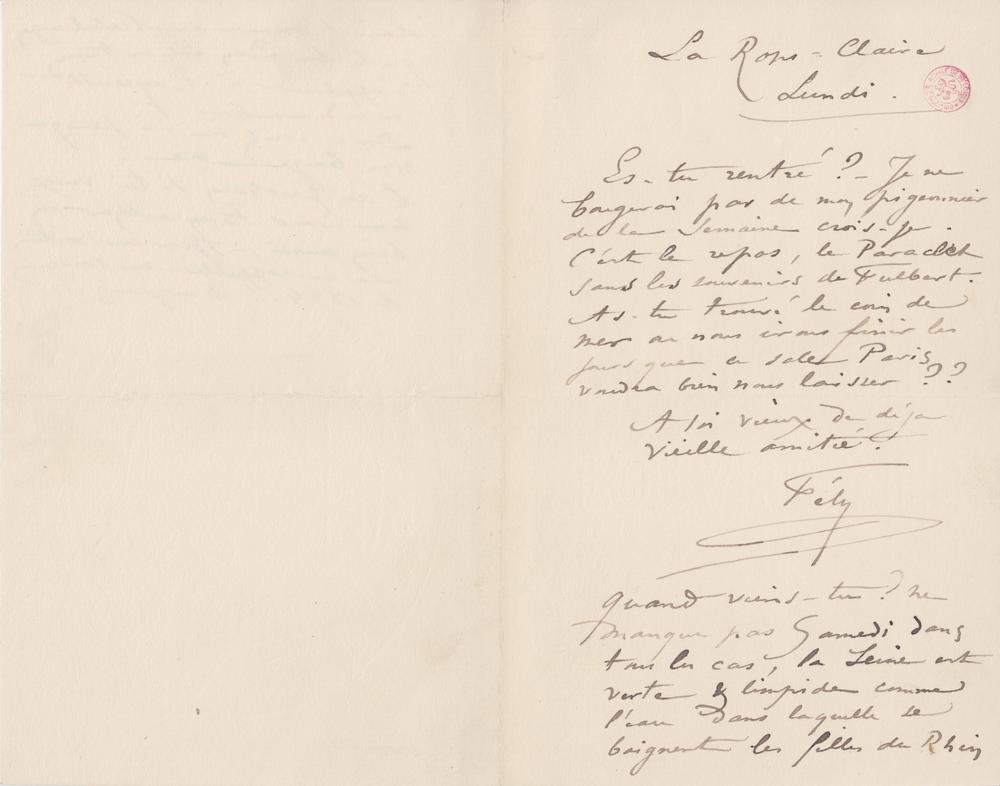 La Rops = Claire
Lundi .
Es-tu rentré ? - Je ne
bougerai pas de mon pigeonnier
de la Semaine crois-je .
C'est le repos, le Paraclet
sans les souvenirs de Fulbert.
As-tu trouvé le coin de
mer ou nous irons finir les
jours que ce sale Paris
voudra bien nous laisser ??
A toi vieux de déja
vieille amitié !
Fély
Quand viens-tu ? ne
manque pas Samedi dans
tous les cas, la Seine est
verte & limpide comme
l'eau dans laquelle se
baignent les filles du Rhin